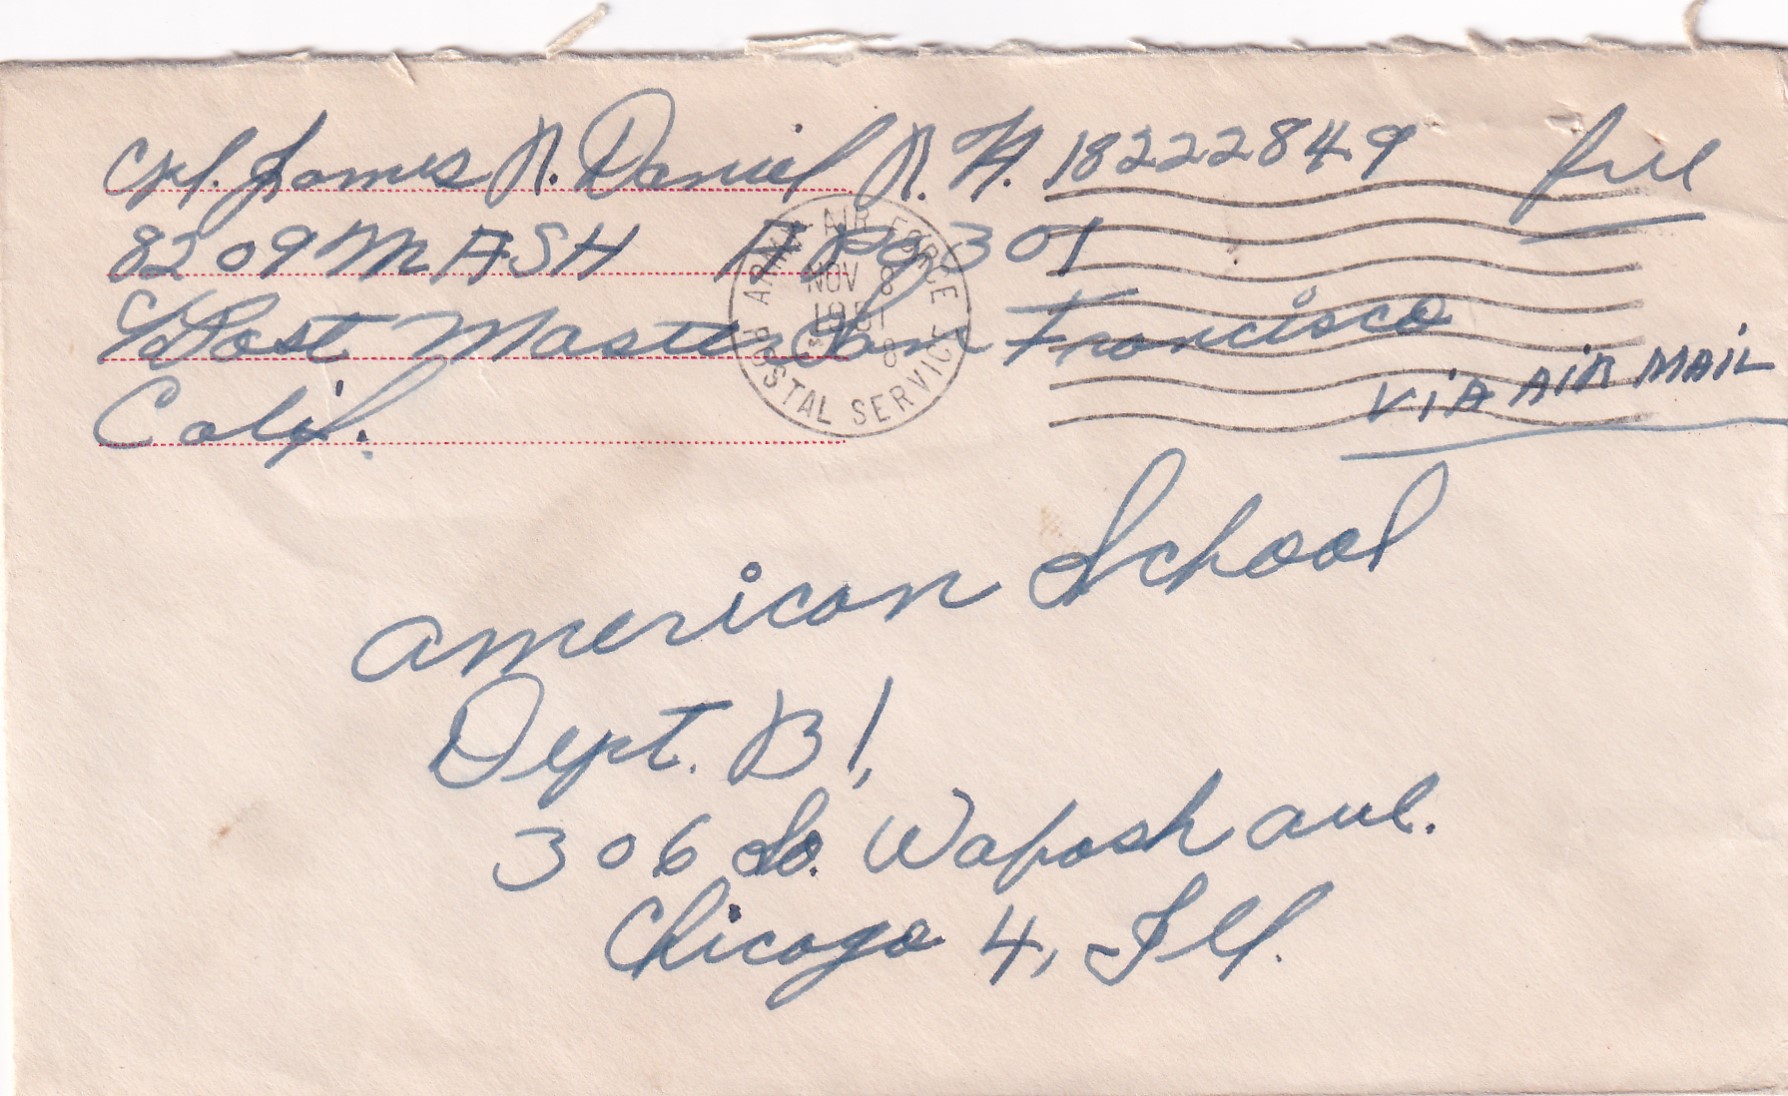 Cpl. James R. Daniel R.A. 18222849 free
8209 MASH APO 301
c/o Post Master San Francisco
Calif.
ARMY-AIR FORCE POSTAL SERVICE
NOV 8
1951
VIA AIR MAIL
American School
Dept. B1,
306 So. Wabash Ave.
Chicago 4, Ill.